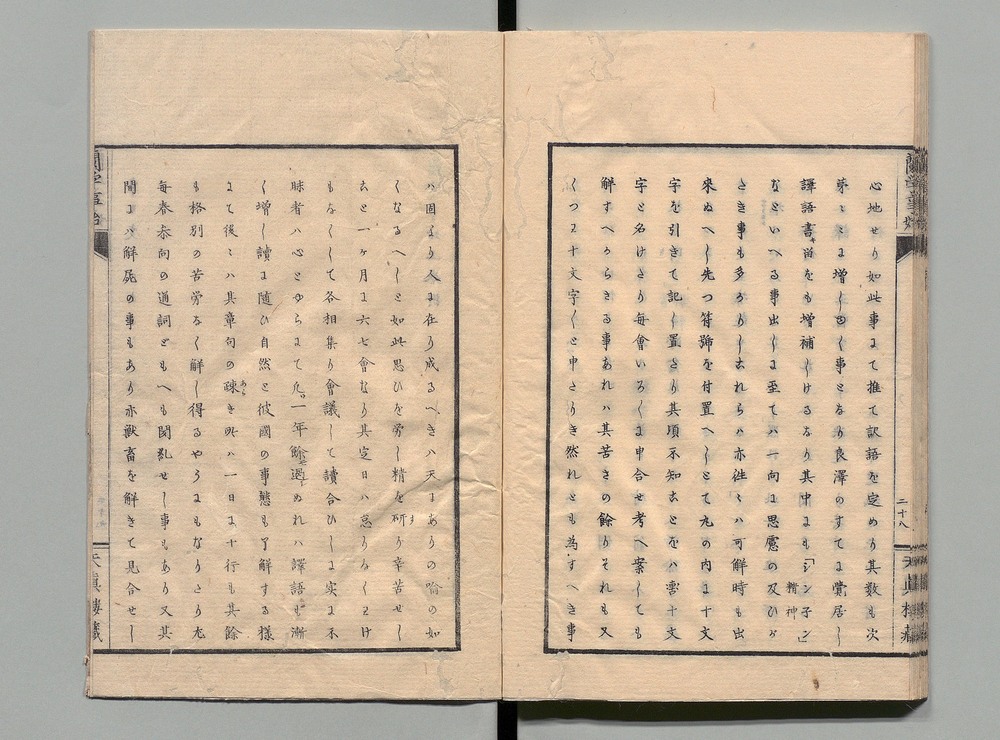 心地せり如此事にて推て訳語を定めり其数も次
第〻〻に増しゆく事となり良澤のすてに覺居し
譯語書留をも增補しけるなり其中にも「シン子ン」精神
なといへる事出しに至てハ一向に思慮の及ひか
たき事も多かりし去れらハ亦徃〻ハ可解時も出
來ぬへし先つ符號を付置へしとて丸の内に十文
字を引きて記し置たり其頃不知ことをハ轡十文
字と名けたり毎會いろ〳〵に申合せ考へ案しても
解すへからさる事あれハ其苦さの餘りそれも又
くつわ十文字〳〵と申たりき然れとも為すへき事
ハ固より人に在り成るへきハ天にありの喩の如
くなるへしと如此思ひを労し精を研り辛苦せし
去と一ヶ月に六七會なり其定日ハ怠りなくわけ
もなくして各相集り會議して讀合ひしに実に不
昧者ハ心とやらにて凡一年餘過ぬれハ譯語も漸
く增し讀に隨ひ自然と彼國の事態も了解する様
にて後〻ハ其章句の疎き所ハ一日に十行も其餘
も格別の苦労なく解し得るやうにもなりたり尤
毎春参向の通詞ともへも聞糺せし事もあり又其
間にハ解屍の事もあり亦獸畜を解きて見合せし
蘭学事始
二十八
天真樓藏